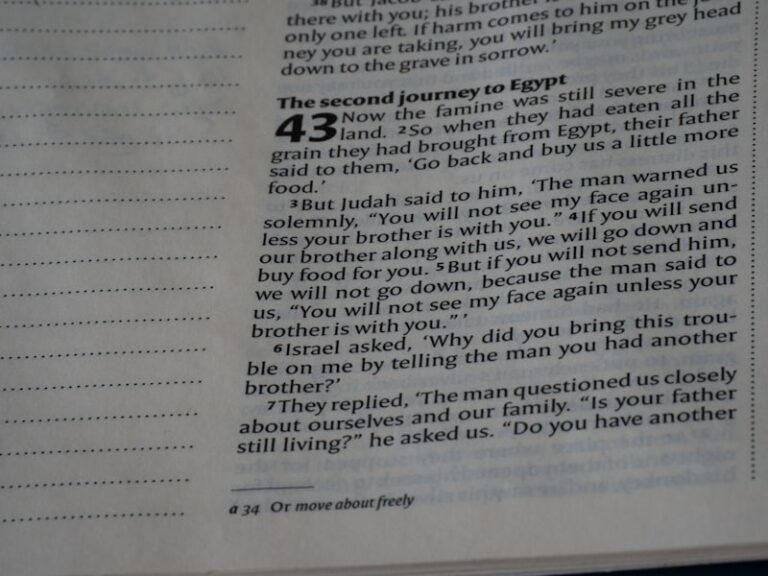 38But Jacob
there with you; his brother is
only one left. If harm comes to him on the jour-
ney you are taking, you will bring my grey head
down to the grave in sorrow.'
The second journey to Egypt
43 Now the famine was still severe in the
land. 2So when they had eaten all the
grain they had brought from Egypt, their father
said to them, 'Go back and buy us a little more
food.'
3But Judah said to him, 'The man warned us
solemnly, "You will not see my face again un-
less your brother is with you." 4If you will send
our brother along with us, we will go down and
buy food for you. 5But if you will not send him,
we will not go down, because the man said to
us, "You will not see my face again unless your
brother is with you."'
6Israel asked, 'Why did you bring this trou-
ble on me by telling the man you had another
brother?'
7They replied, 'The man questioned us closely
about ourselves and our family. "Is your father
still living?" he asked us. "Do you have another
a 34 Or move about freely